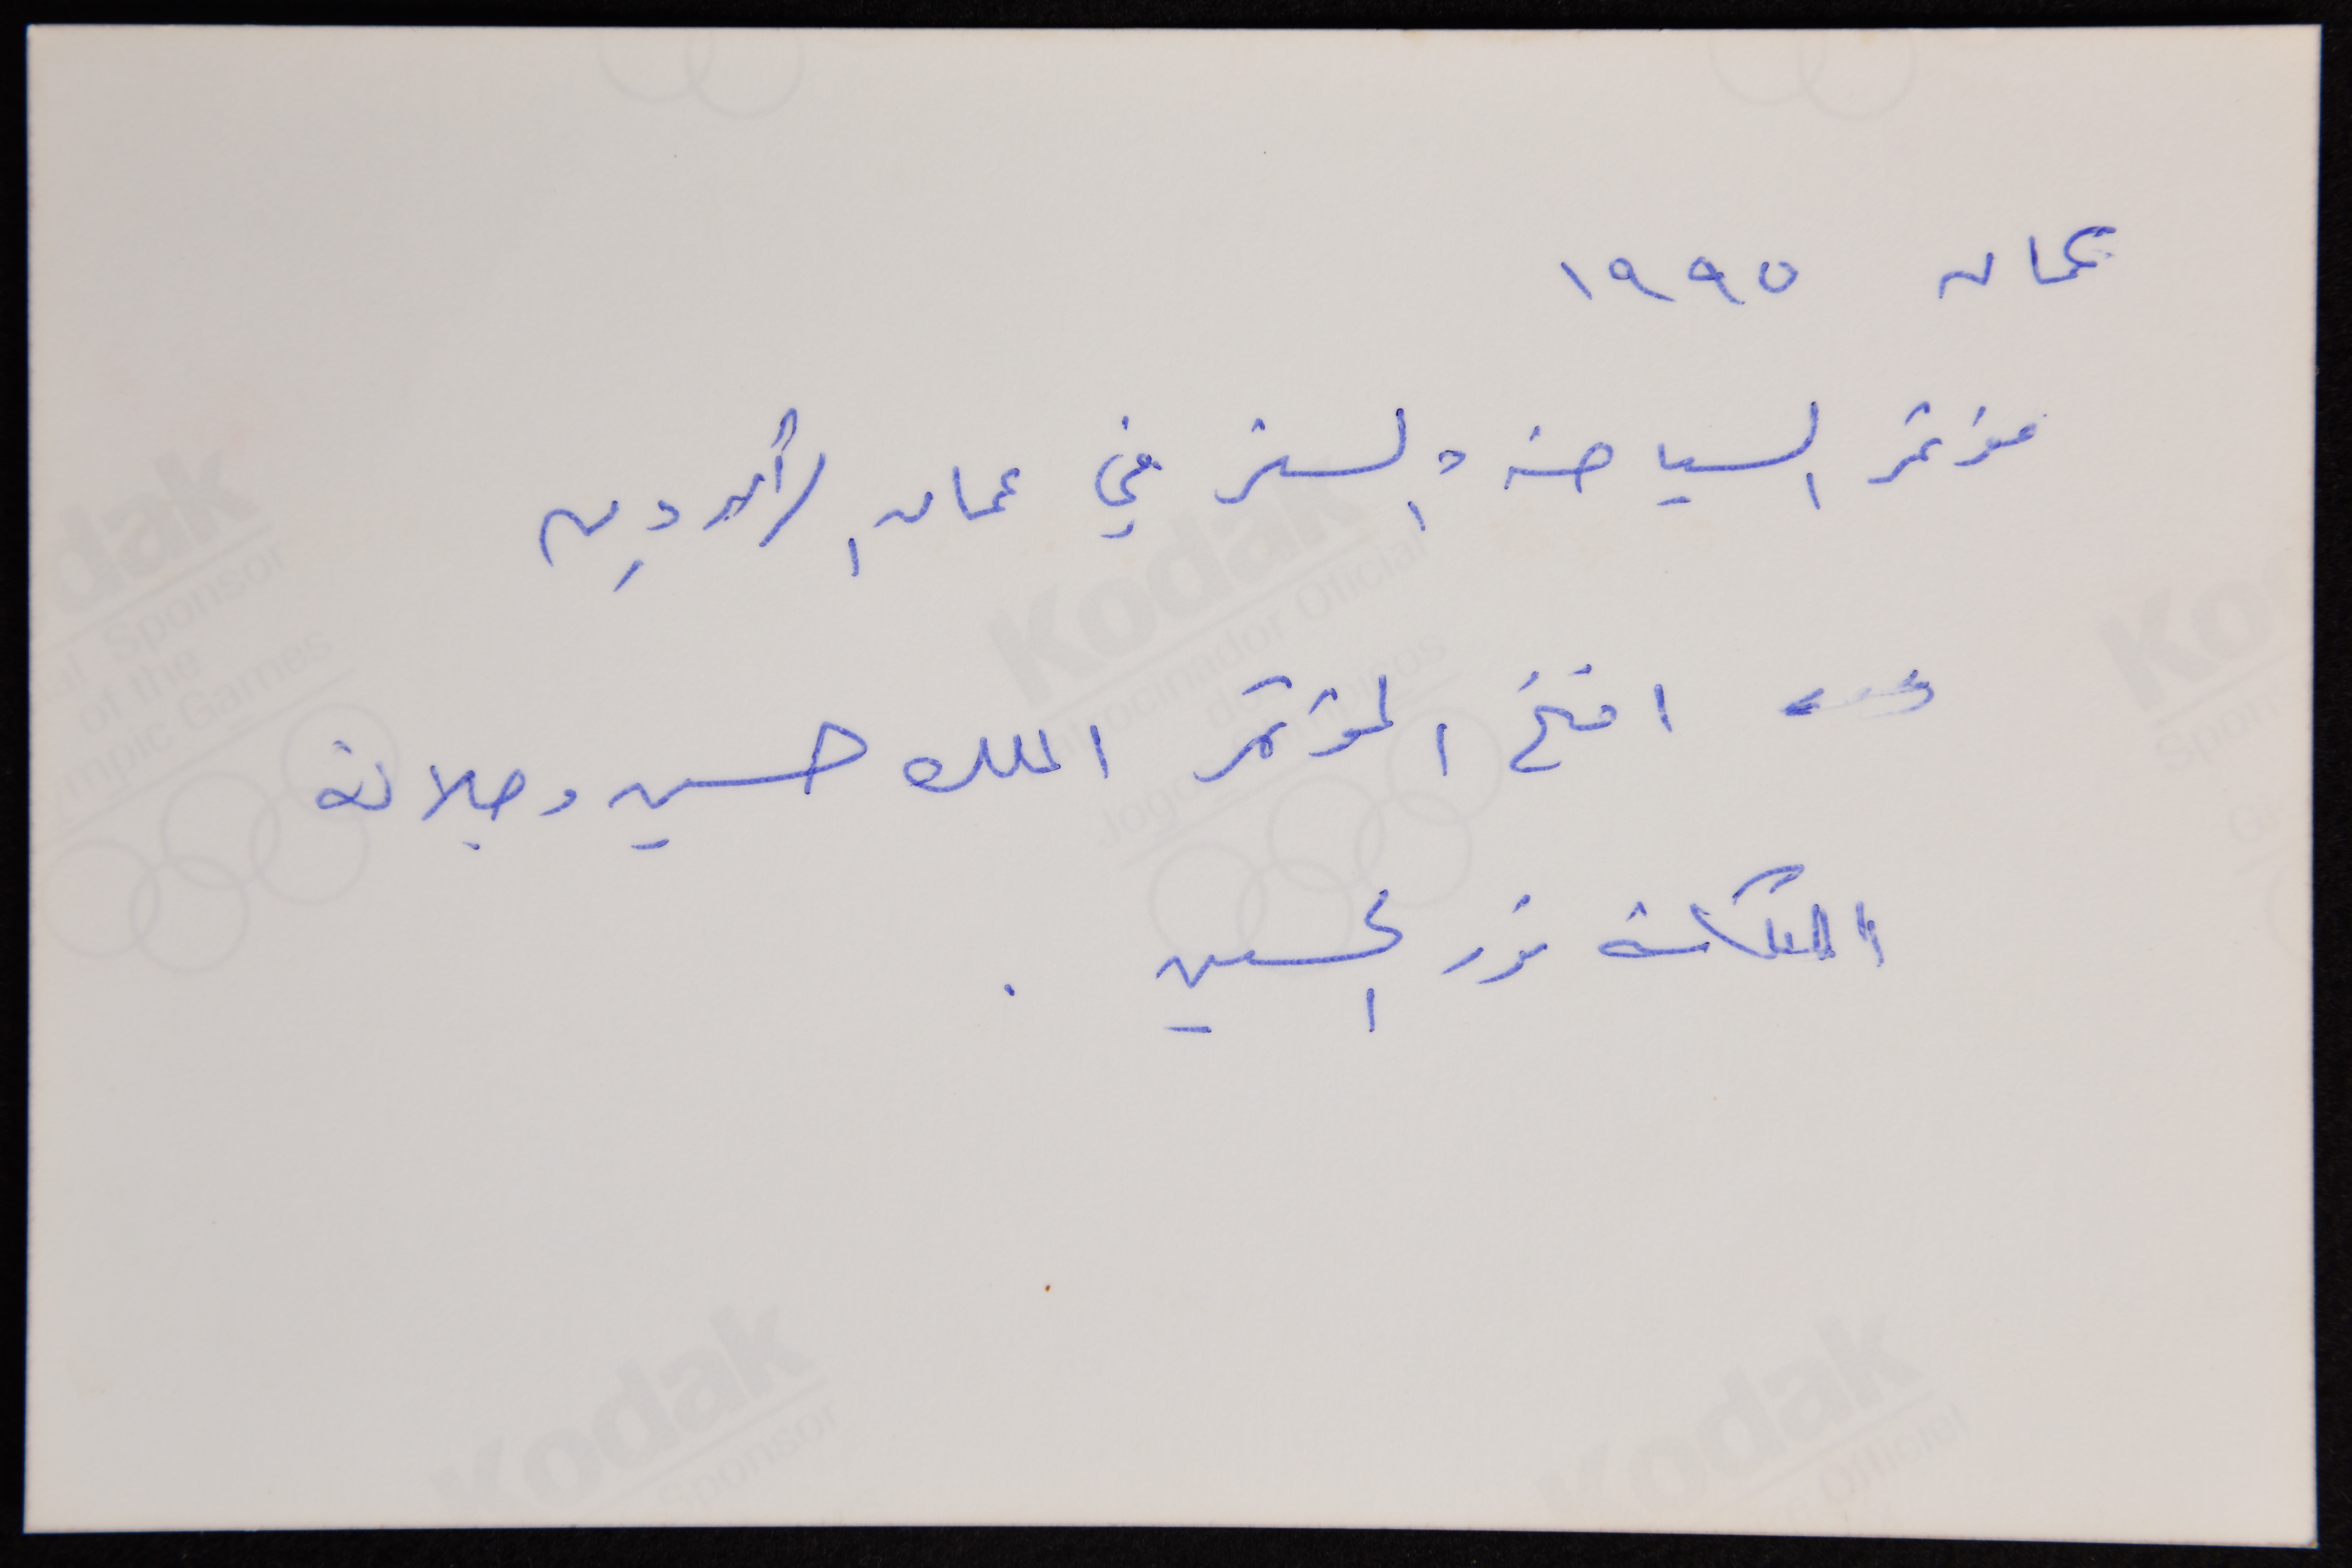 عمان ١٩٩٥
مؤتمر السياحة والسفر في عمان الأردن
افتتح المؤتمر الملك حسين وجلالة
الملكة نور الحسين .
Kodak
al Sponsor
of the
mpic Games
Kodak
Patrocinador Oficial
dos
Jogos Olímpicos
Kodak
Sponsor
Kodak
Officiel